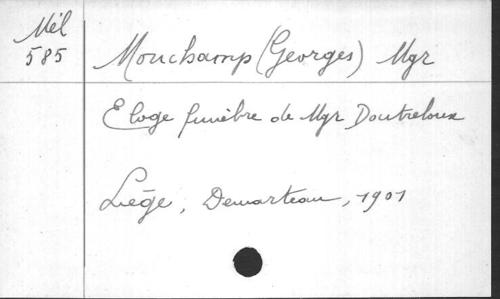 Mél
585
Monchamp (Georges) Mgr
Eloge funèbre de Mgr Doutreloux
Liége, Demarteau, 1901